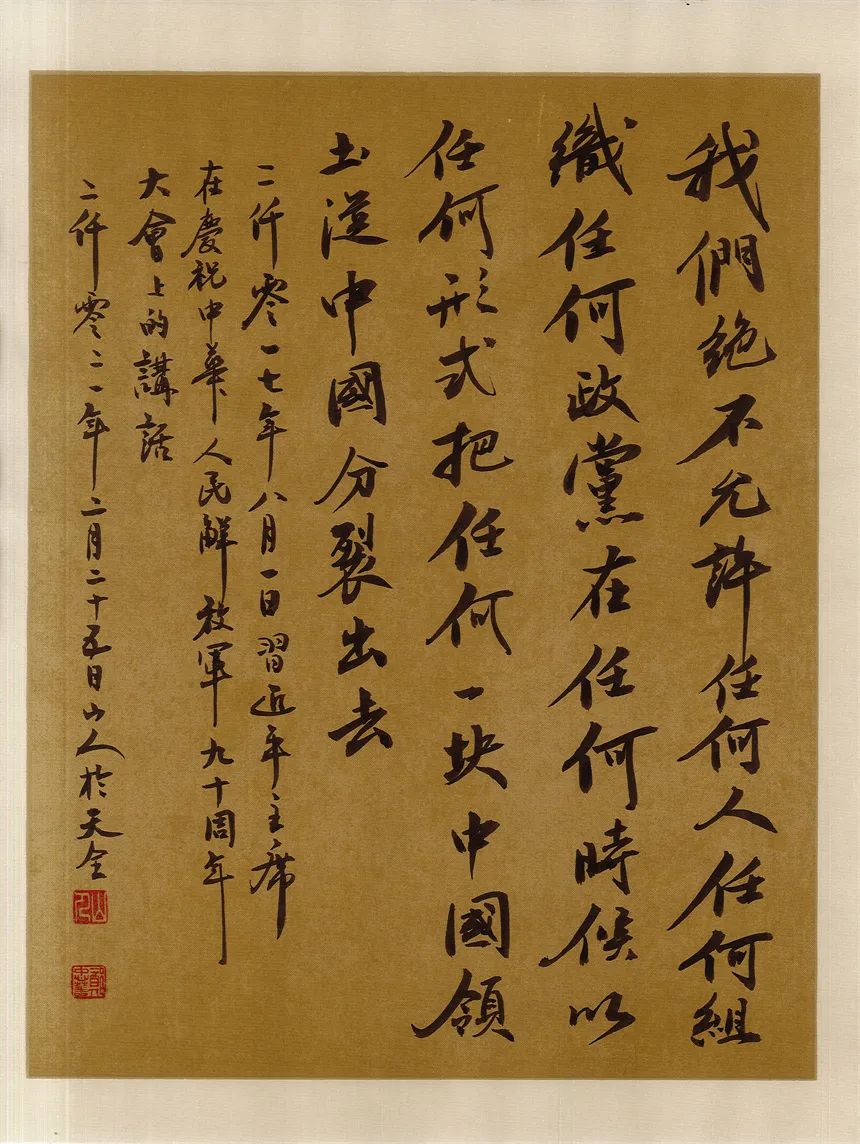 我們絶不允許任何人任何組
織任何政黨在任何時候以
任何形式把任何一块中國領
土從中國分裂出去
二仟零一七年八月一日習近平主席
在慶祝中華人民解放軍九十周年
大會上的講話
二仟零二一年二月二十五日山人於天全
山人